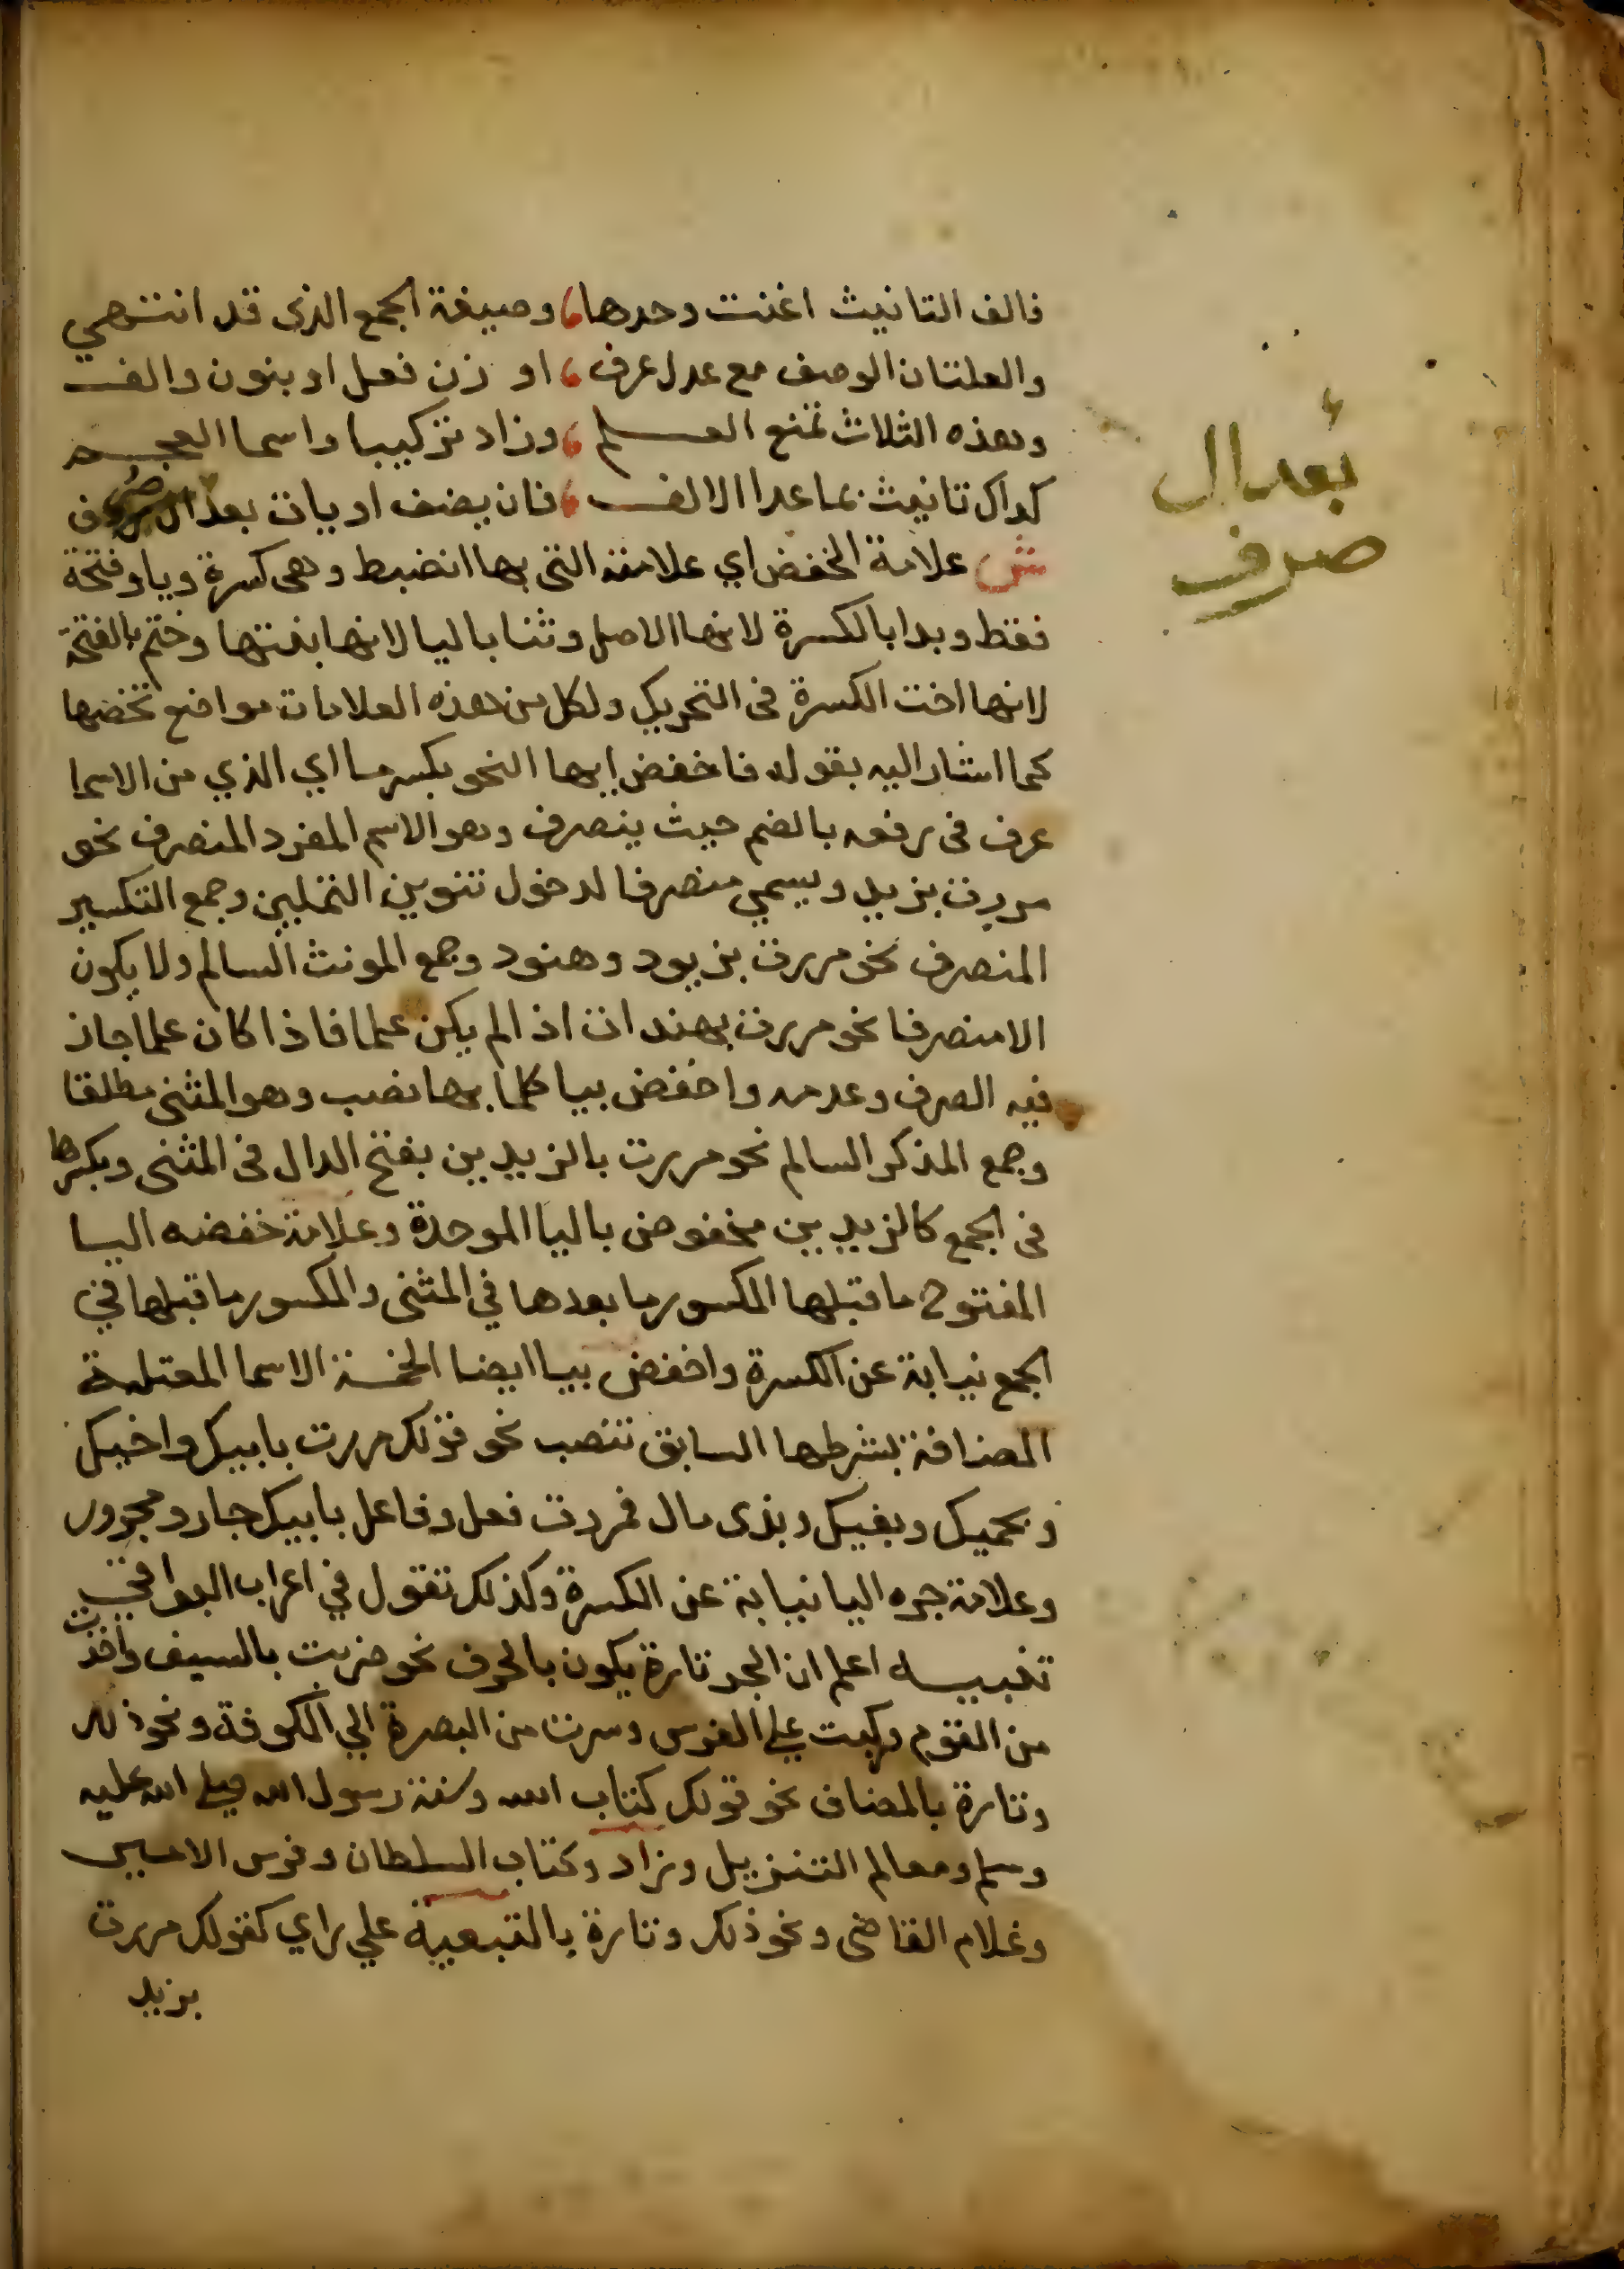 فالف التانيث اغنت وحدها، وصيغة الجمع الذى قد انتهي
والعلتان الوصف مع عدل عرف، او زن فعل او بنون والف
وهذه الثلاث تمنع العلم، وزاد تركيبا واسما العجم
كداك تانيث بما عدا الالف، فان يضف او يات بعد ال صرف
بعد ال
صرف
ش علامة الخفض اي علامته التى بها انضبط وهى كسرة ويا وفتحة
فقط وبدا بالكسرة لانها الاصل وثنا باليا لانها بنتها وختم بالفتحة
لانها اخت الكسرة فى التحريك ولكل من هذه العلامات مواضع تخضها
كما اشار اليه بقوله فاخفض ايها النحو بكسر ما اي الذي من الاسما
عرف فى رفعه بالضم حيث ينصرف وهو الاسم المفرد المنصرف نحو
مررت بزيد ويسمي منصرفا لدخول تنوين التمكين وجمع التكسير
المنصرف نحو مررت بزيود وهنود وجمع المونث السالم ولا يكون
الا منصرفا نحو مررت بهندات اذا لم يكن علما فاذا كان علما جاز
فيه الصرف وعدمه واخفض بيا كلما بها نصب وهو المثنى مطلقا
وجمع المذكر السالم نحو مررت بالزيدين بفتح الدال فى المثنى وبكسرها
فى الجمع كالزيدين مخفوض باليا الموحدة وعلامة خفضه اليا
المفتوح ما قبلها المكسور ما بعدها في المثنى والمكسور ما قبلها في
الجمع نيابة عن الكسرة واخفض بيا ايضا الخمسة الاسما المعتلة
المضافة بشرطها السابق تنصب نحو قولك مررت بابيك واخيك
وبحميك وبفيك وبذى مال فمررت فعل وفاعل بابيك جار ومجرور
وعلامة جره اليا نيابة عن الكسرة وكذلك تقول في اعراب البواقي
تنبيه اعلم ان الجر تارة يكون بالحرف نحو ضربت بالسيف واخذت
من القوم وركبت على الفرس وسرت من البصرة الي الكوفة ونحو ذلك
وتارة بالمضاف نحو قولك كتاب الله وسنة رسول الله صلى الله عليه
وسلم ومعالم التنزيل وزاد وكتاب السلطان وفرس الامير
وغلام القاضى ونحو ذلك وتارة بالتبعية علي راي كقولك مررت
بزيد